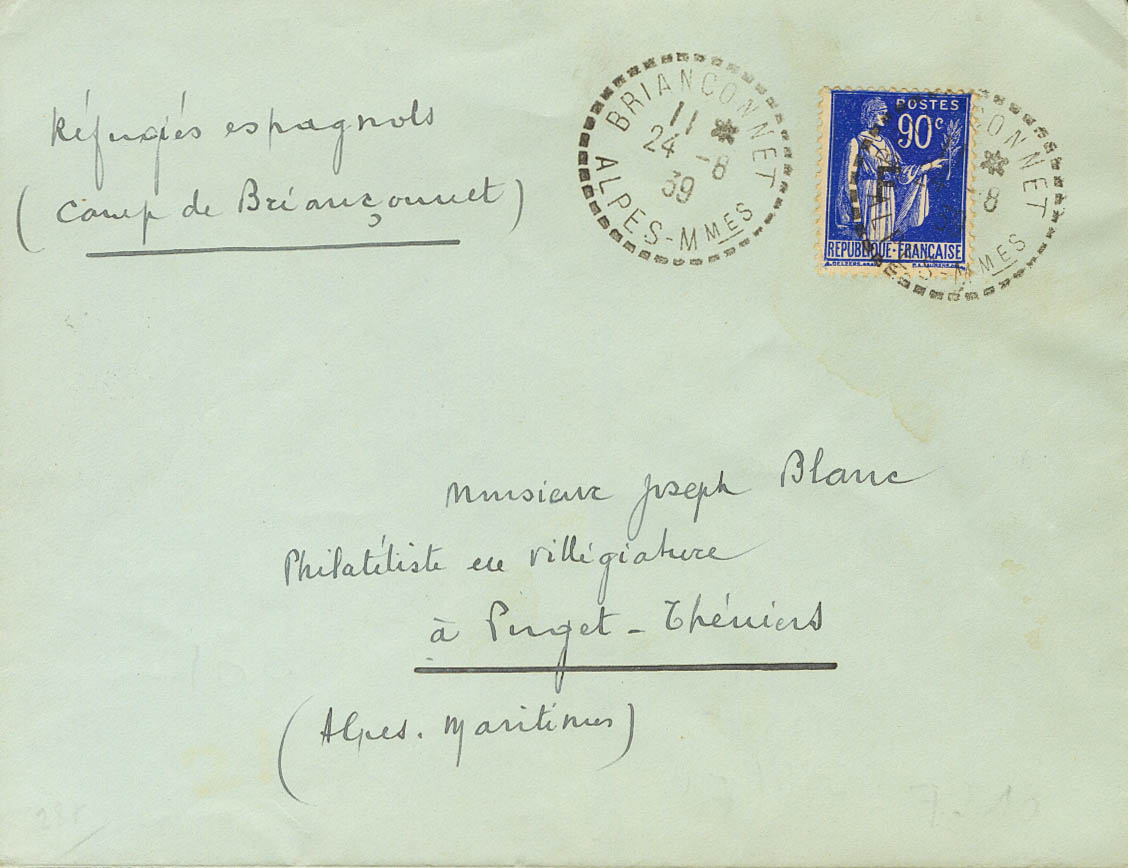 Réfugiés espagnols
(Camp de Briançonnet)
BRIANÇONNET
11 *
24 -8
39
ALPES-MMES
POSTES
90c
F
RÉPUBLIQUE-FRANÇAISE
ONNET
* -8
S-MMES
Monsieur Joseph Blanc
Philatéliste en villégiature
à Puget-Théniers
(Alpes-Maritimes)